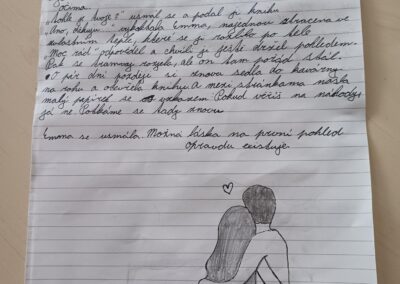 očima.
"Tohle je tvoje?" usmál se a podal jí knihu.
"Ano, děkuju..." vykoktala Emma, najednou ztracena ve
zvláštním teple, které se jí rozlilo po těle.
"Moc rád" odpověděl a chvíli ji ještě držel pohledem.
Pak se tramvaj rozjela, ale on tam pořád stál.
O pár dní později si znovu sedla do kavárny
na rohu a otevřela knihu. A mezi stránkama našla
malý papírek se vzkazem Pokud věříš na náhody
já ne Potkáme se tady znovu.
Emma se usmála. Možná láska na první pohled
opravdu existuje.